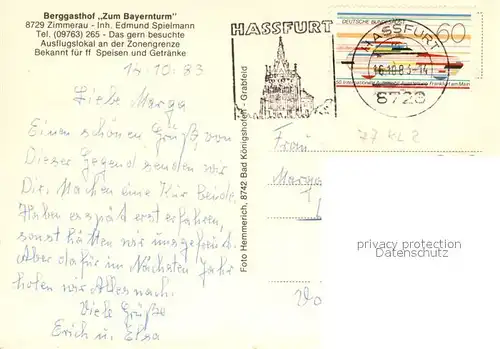 Berggasthof „Zum Bayernturm"
8729 Zimmerau - Inh. Edmund Spielmann
Tel. (09763) 265 - Das gern besuchte
Ausflugslokal an der Zonengrenze
Bekannt für ff Speisen und Getränke
14.10.83
Liebe Marga
Einen schönen Gruß von
Dieser Gegend senden wir
Dir. Machen eine Kur Beide.
Haben er spät erst erfahren,
sonst hätten wir uns gefreut.
Aber da für im Nächsten Jahr
holen wir Alles nach.
Viele Grüße
Erich u. Elsa
Foto Hemmerich, 8742 Bad Königshofen - Grabfeld
HASSFURT
DEUTSCHE BUNDESPOST
60
HASSFURT
8728
Frau
Marga
77 KL 2
privacy protection
Datenschutz